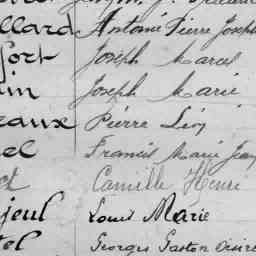 llard Antoine Pierre Joseph
fort Joseph Marcel
in Joseph Marie
eaux Pierre Léon
el Francis Marie Jean
ct Camille Henri
jeul Louis Marie
tel Georges Gaston